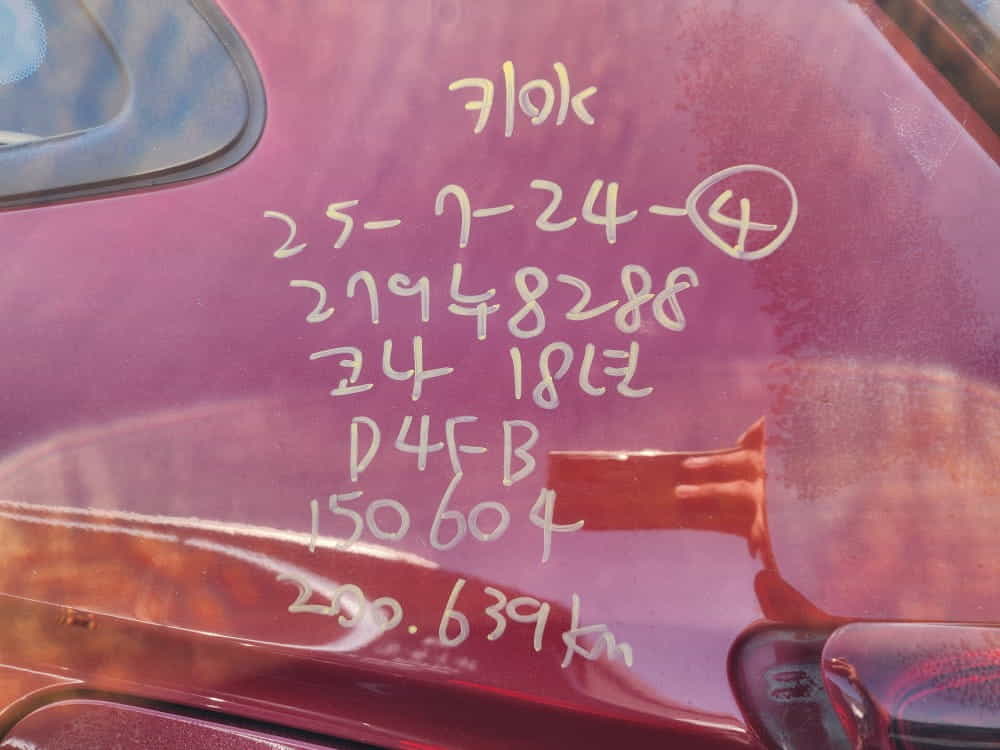 키이K
25-7-24-④
279누8288
코나 18년
D4FB
150604
200.639km